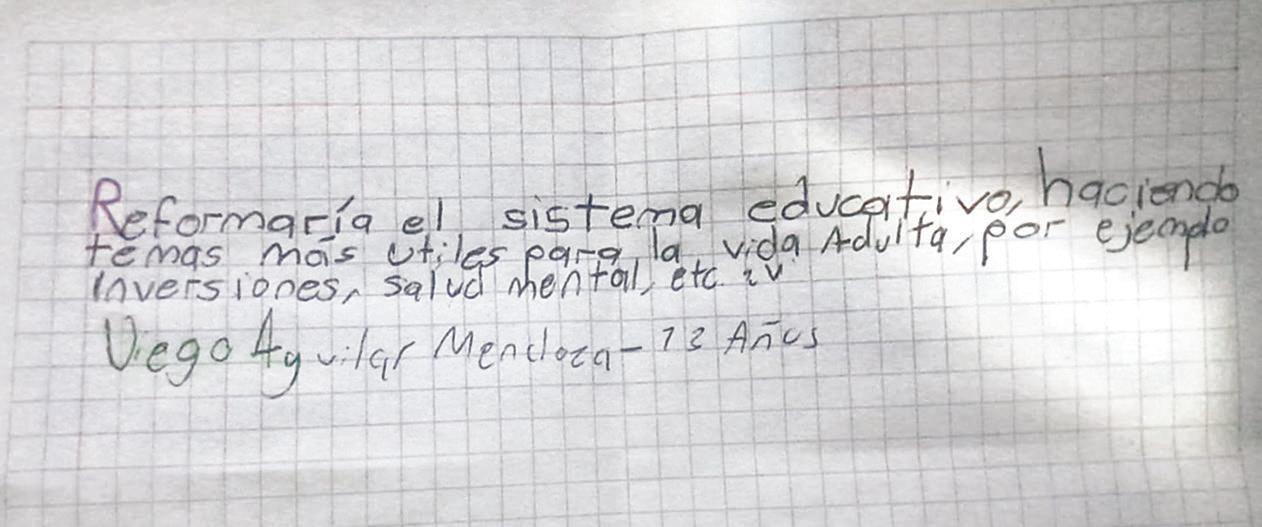 Reformaría el sistema educativo, haciendo
temas más utiles para la vida Adulta, por ejemplo
inversiones, salud mental, etc.
Diego Aguilar Mendoza - 13 Años